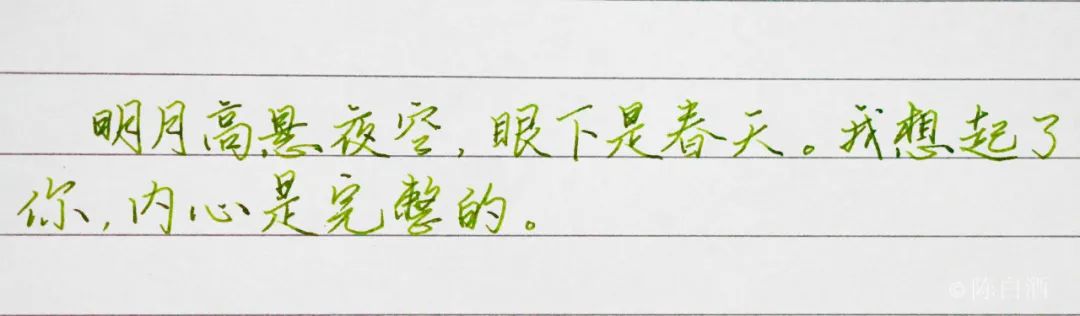 明月高悬夜空,眼下是春天。我想起了
你,内心是完整的。
©陈白酒